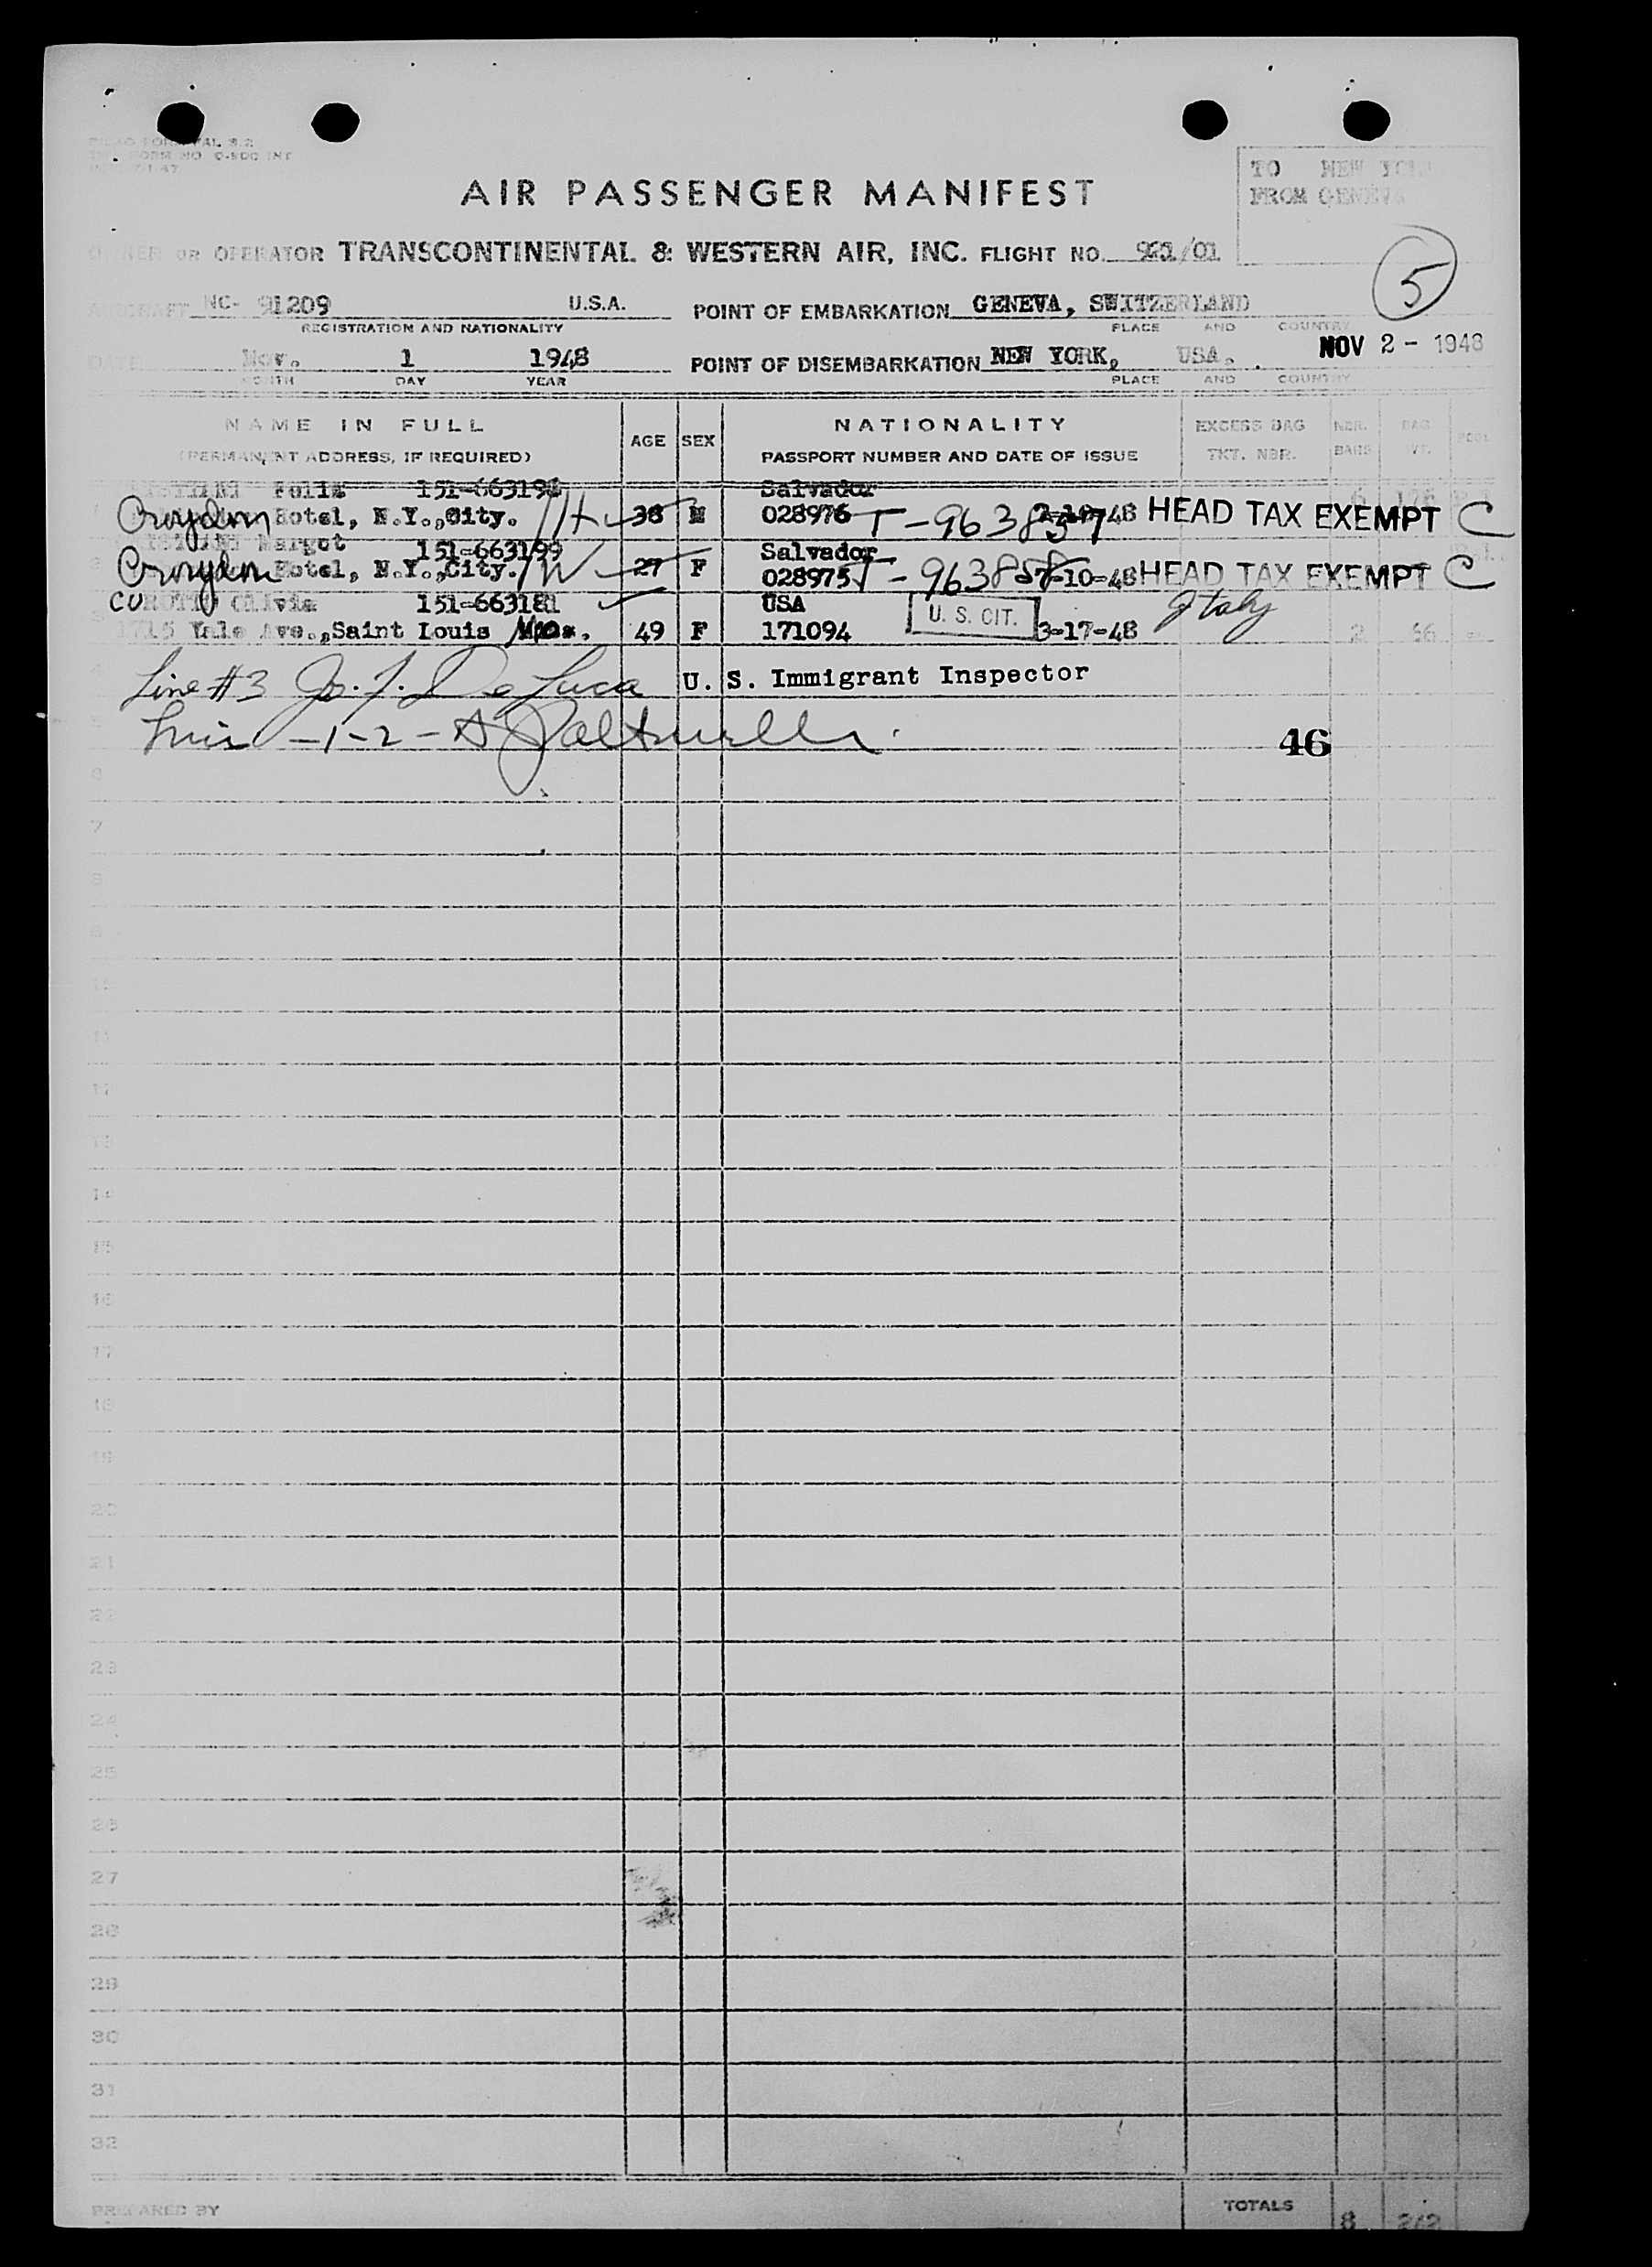 TO NEW YORK
FROM GENEVA
AIR PASSENGER MANIFEST
OWNER OR OPERATOR TRANSCONTINENTAL & WESTERN AIR, INC. FLIGHT NO. 921/01
5
AIRCRAFT NC- 91209 U.S.A. POINT OF EMBARKATION GENEVA, SWITZERLAND
REGISTRATION AND NATIONALITY PLACE AND COUNTRY
DATE Nov. 1 1948 POINT OF DISEMBARKATION NEW YORK, USA. NOV 2 - 1948
MONTH DAY YEAR PLACE AND COUNTRY
NAME IN FULL AGE SEX NATIONALITY EXCESS BAG NBR. BAG
(PERMANENT ADDRESS, IF REQUIRED) PASSPORT NUMBER AND DATE OF ISSUE TKT. NBR. BAGS WT.
Felix Salvador
Croydon Hotel, N.Y.,City. 38 M 028976 T-963857 HEAD TAX EXEMPT C
Margot 151-663199 Salvador
Croydon Hotel, N.Y.,City. W 27 F 028975 -10-48 HEAD TAX EXEMPT C
Olivia USA U. S. CIT. Italy
1715 Yale Ave.,Saint Louis 49 F 171094 3-17-48 2
Line #3 De Luca U. S. Immigrant Inspector
-1-2-
46
7
8
12
13
14
15
16
17
18
19
20
21
22
23
24
25
26
27
28
29
30
31
32
PREPARED BY TOTALS 8 242